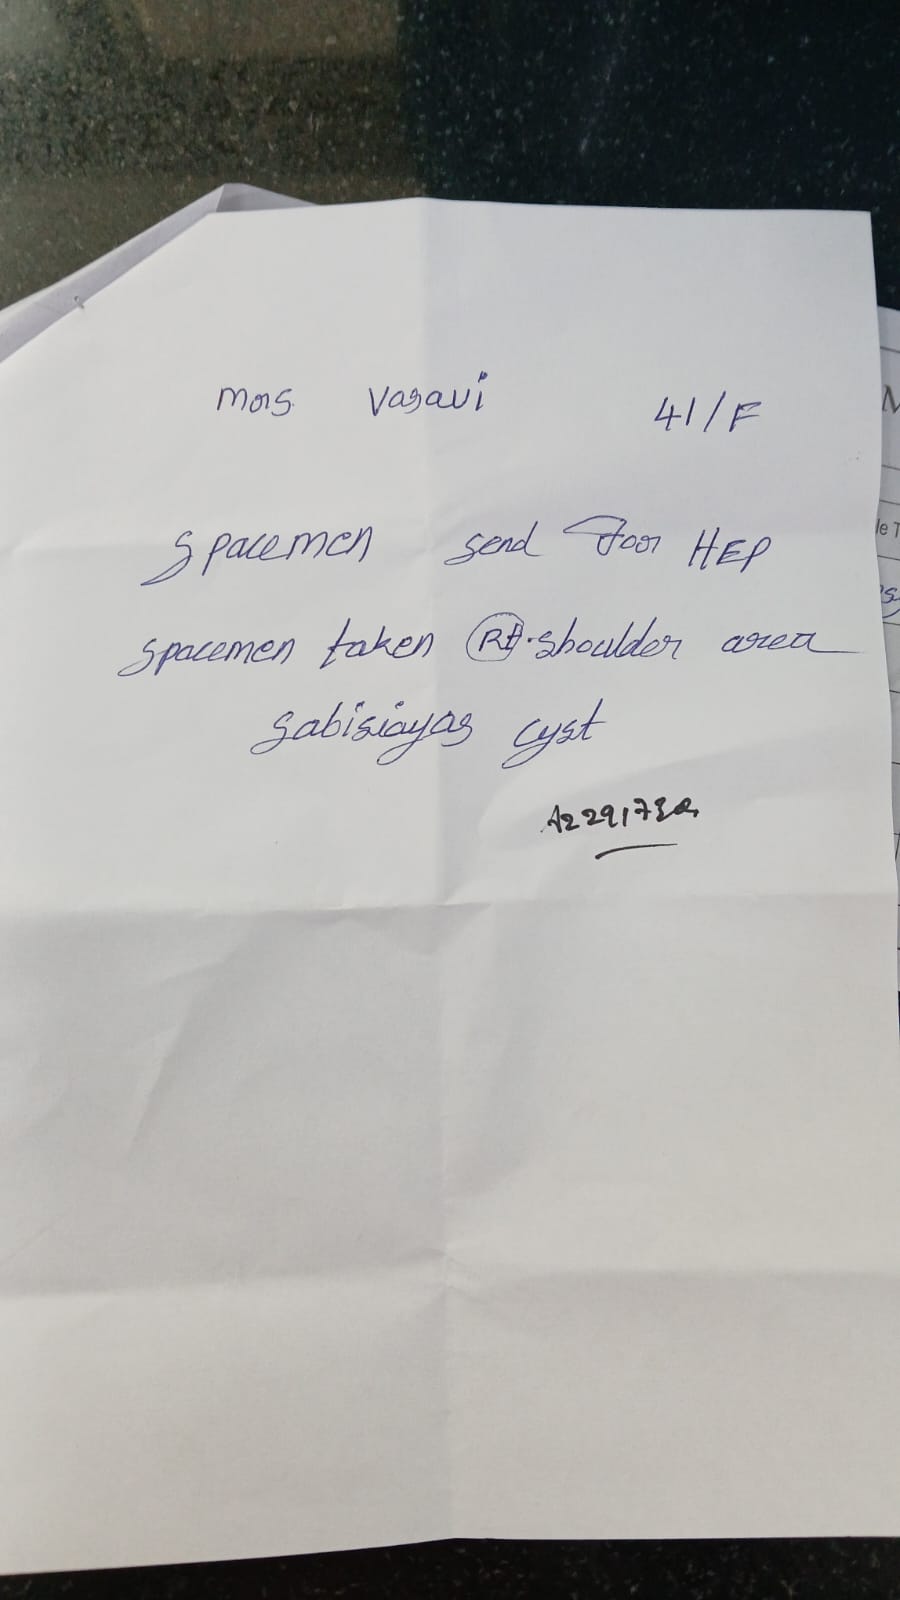 Mrs. Vasavi 41/F
Spacemen send for HEP
Spacemen taken Rt. shoulder area
Sabisiayas cyst